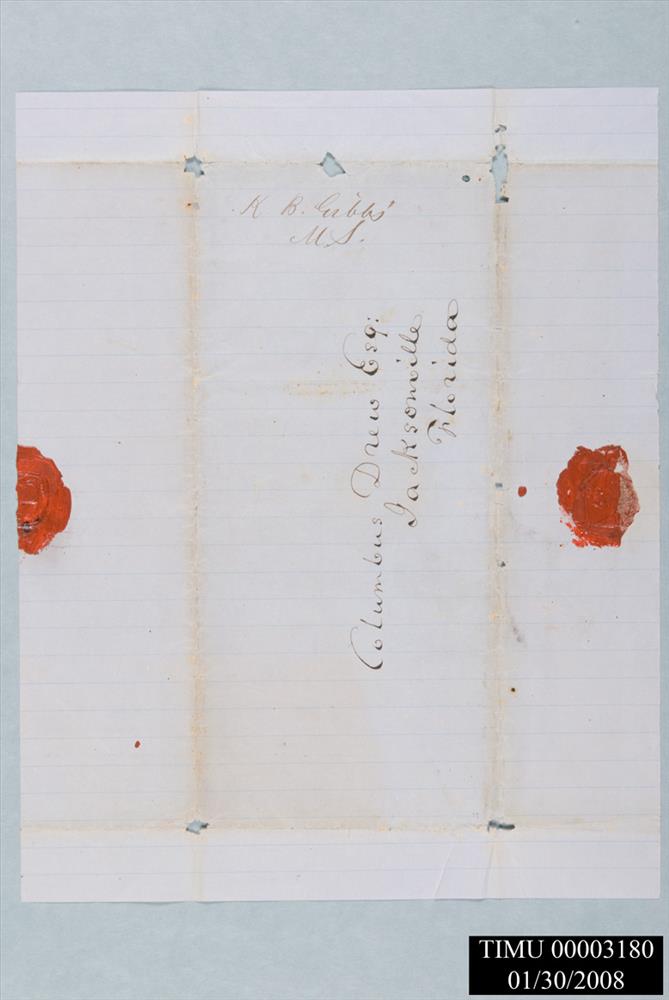 K B. Gibbs'
M.S.
Columbus Drew Esq:
Jacksonville
Florida
TIMU 00003180
01/30/2008